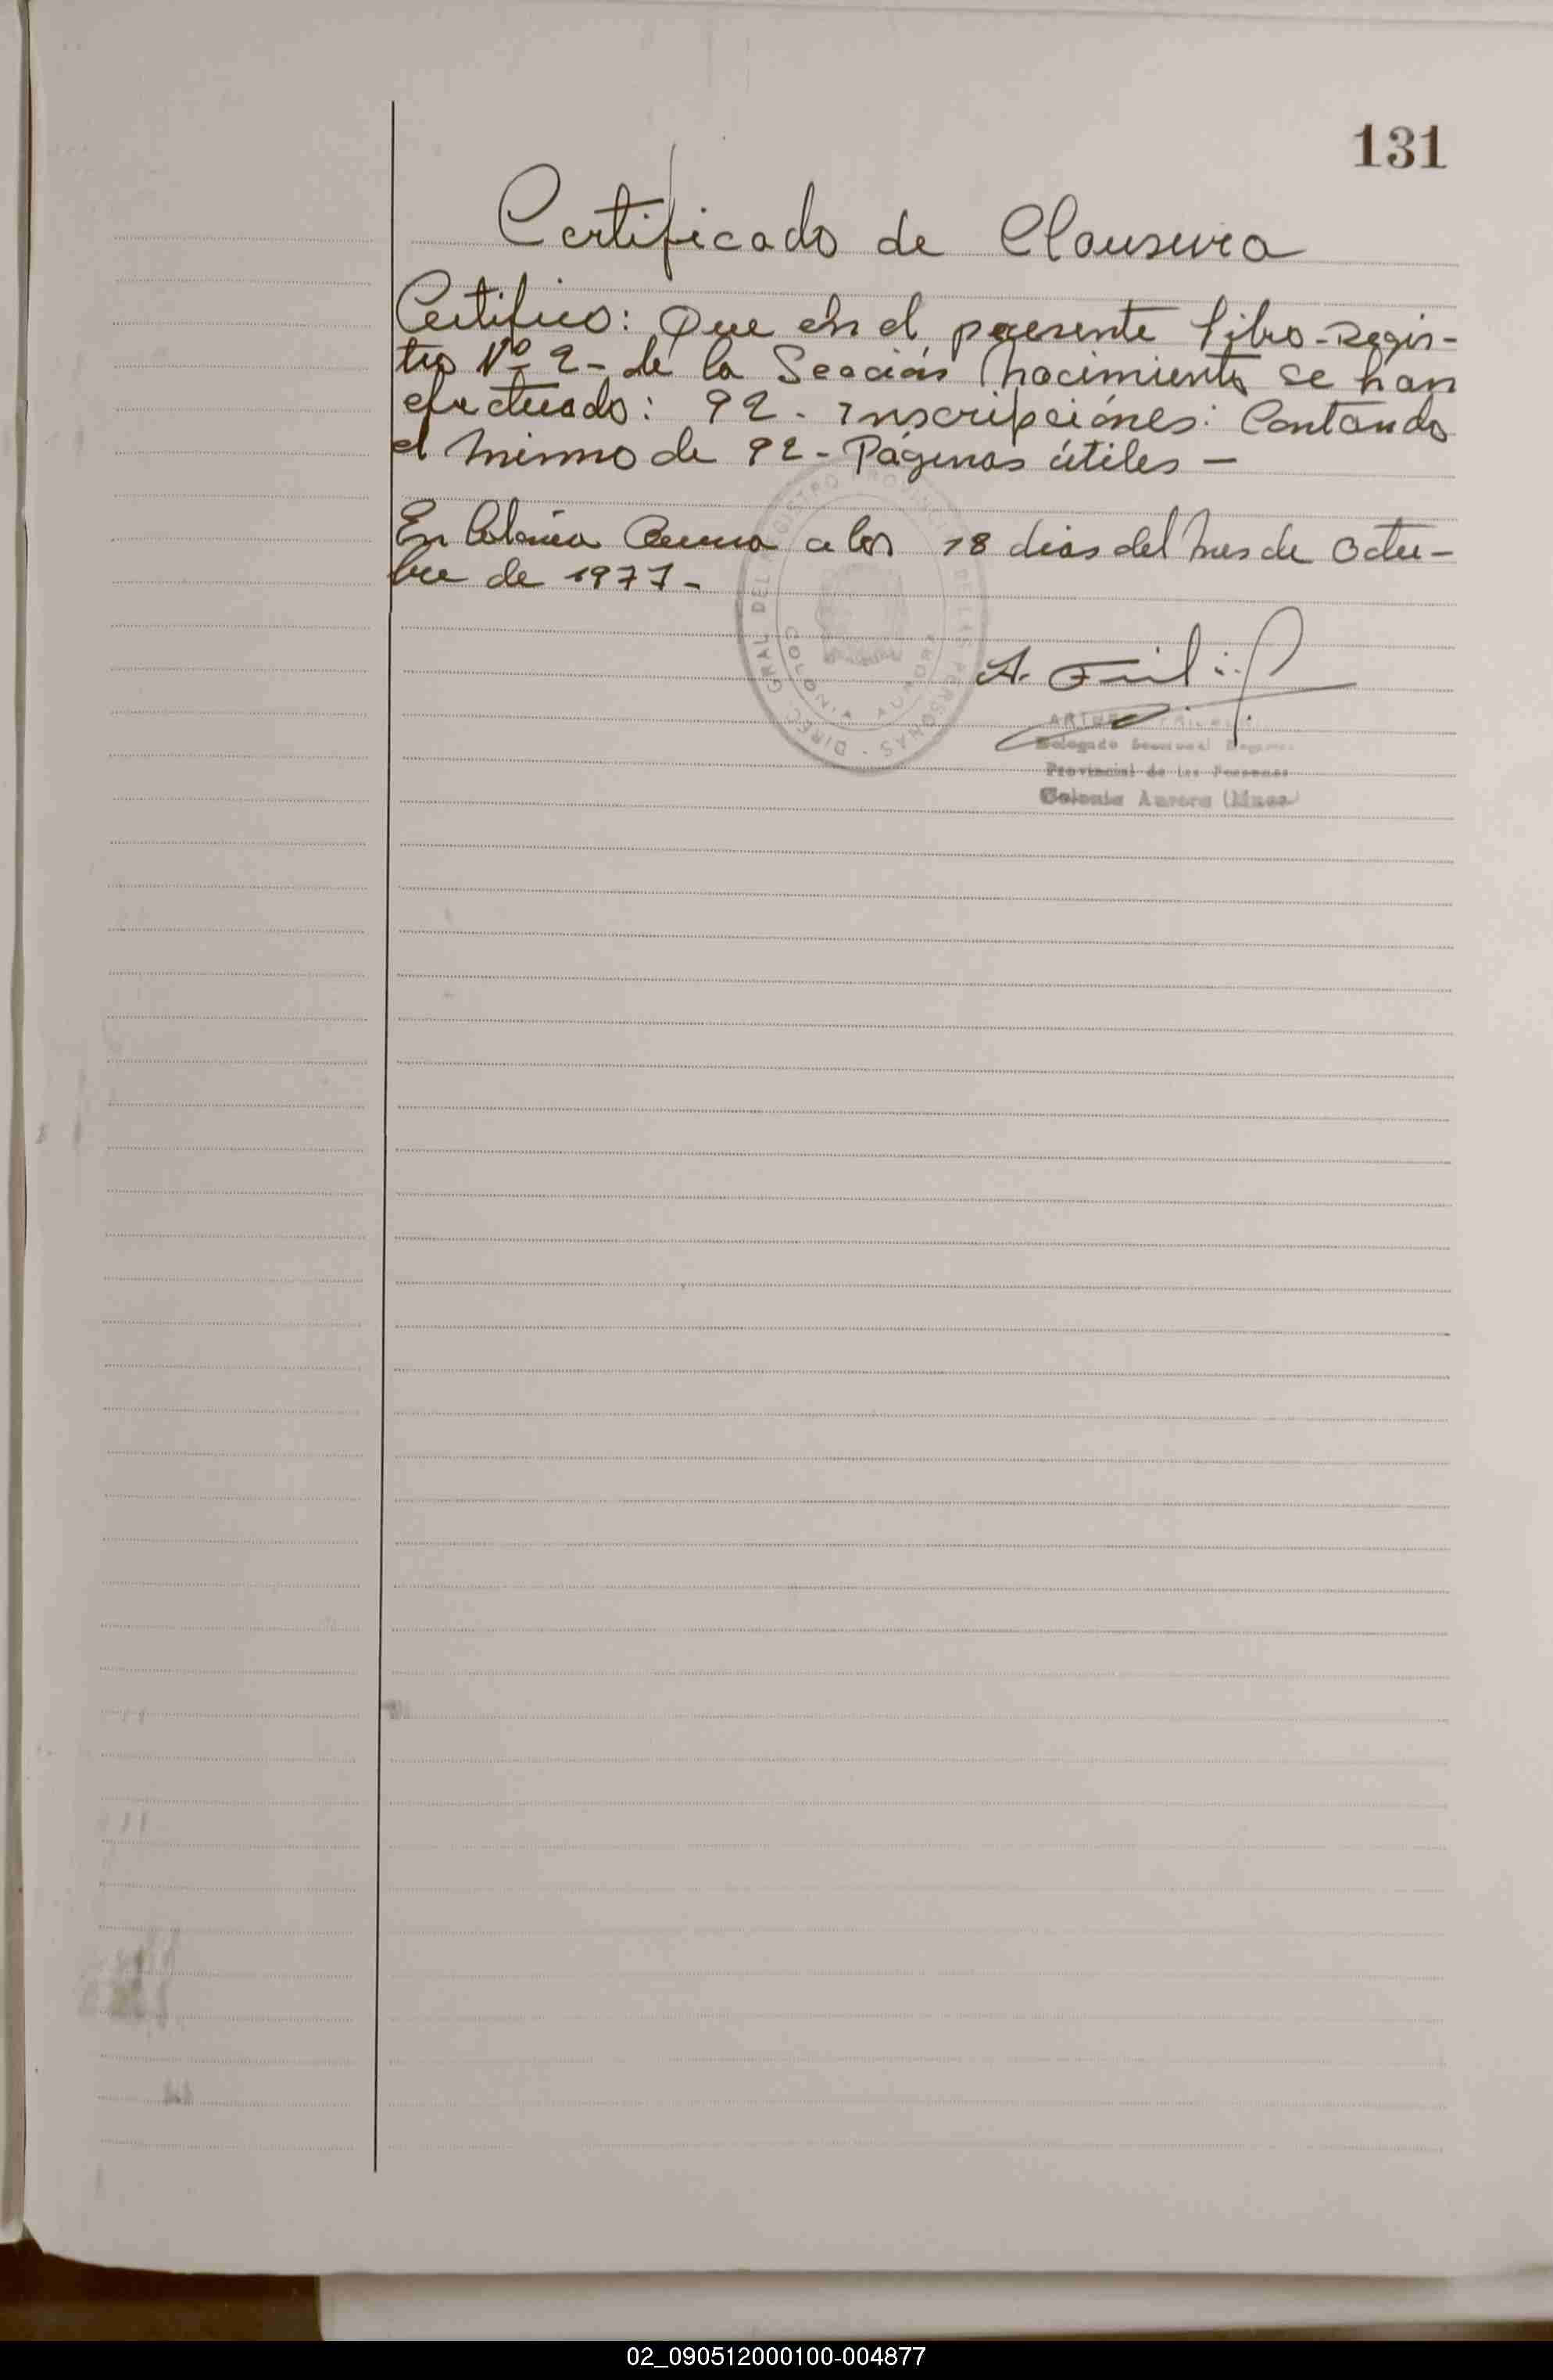 131
Certificado de Clausura
Certifico: Que en el presente Libro-Regis-
tro Nº 2- de la Sección Nacimiento se han
efectuado: 92- Inscripciónes: Contando
el mismo de 92- Páginas útiles -
En Colonia Aurora a los 18 dias del mes de Octu-
bre de 1977-
DIREC. GRAL DEL REGISTRO PROVINCIAL DE LAS PERSONAS -
COLONIA AURORA
A.
Delegado Seccional
Provincial de las Personas
Colonia Aurora (Mnes)
02_090512000100-004877